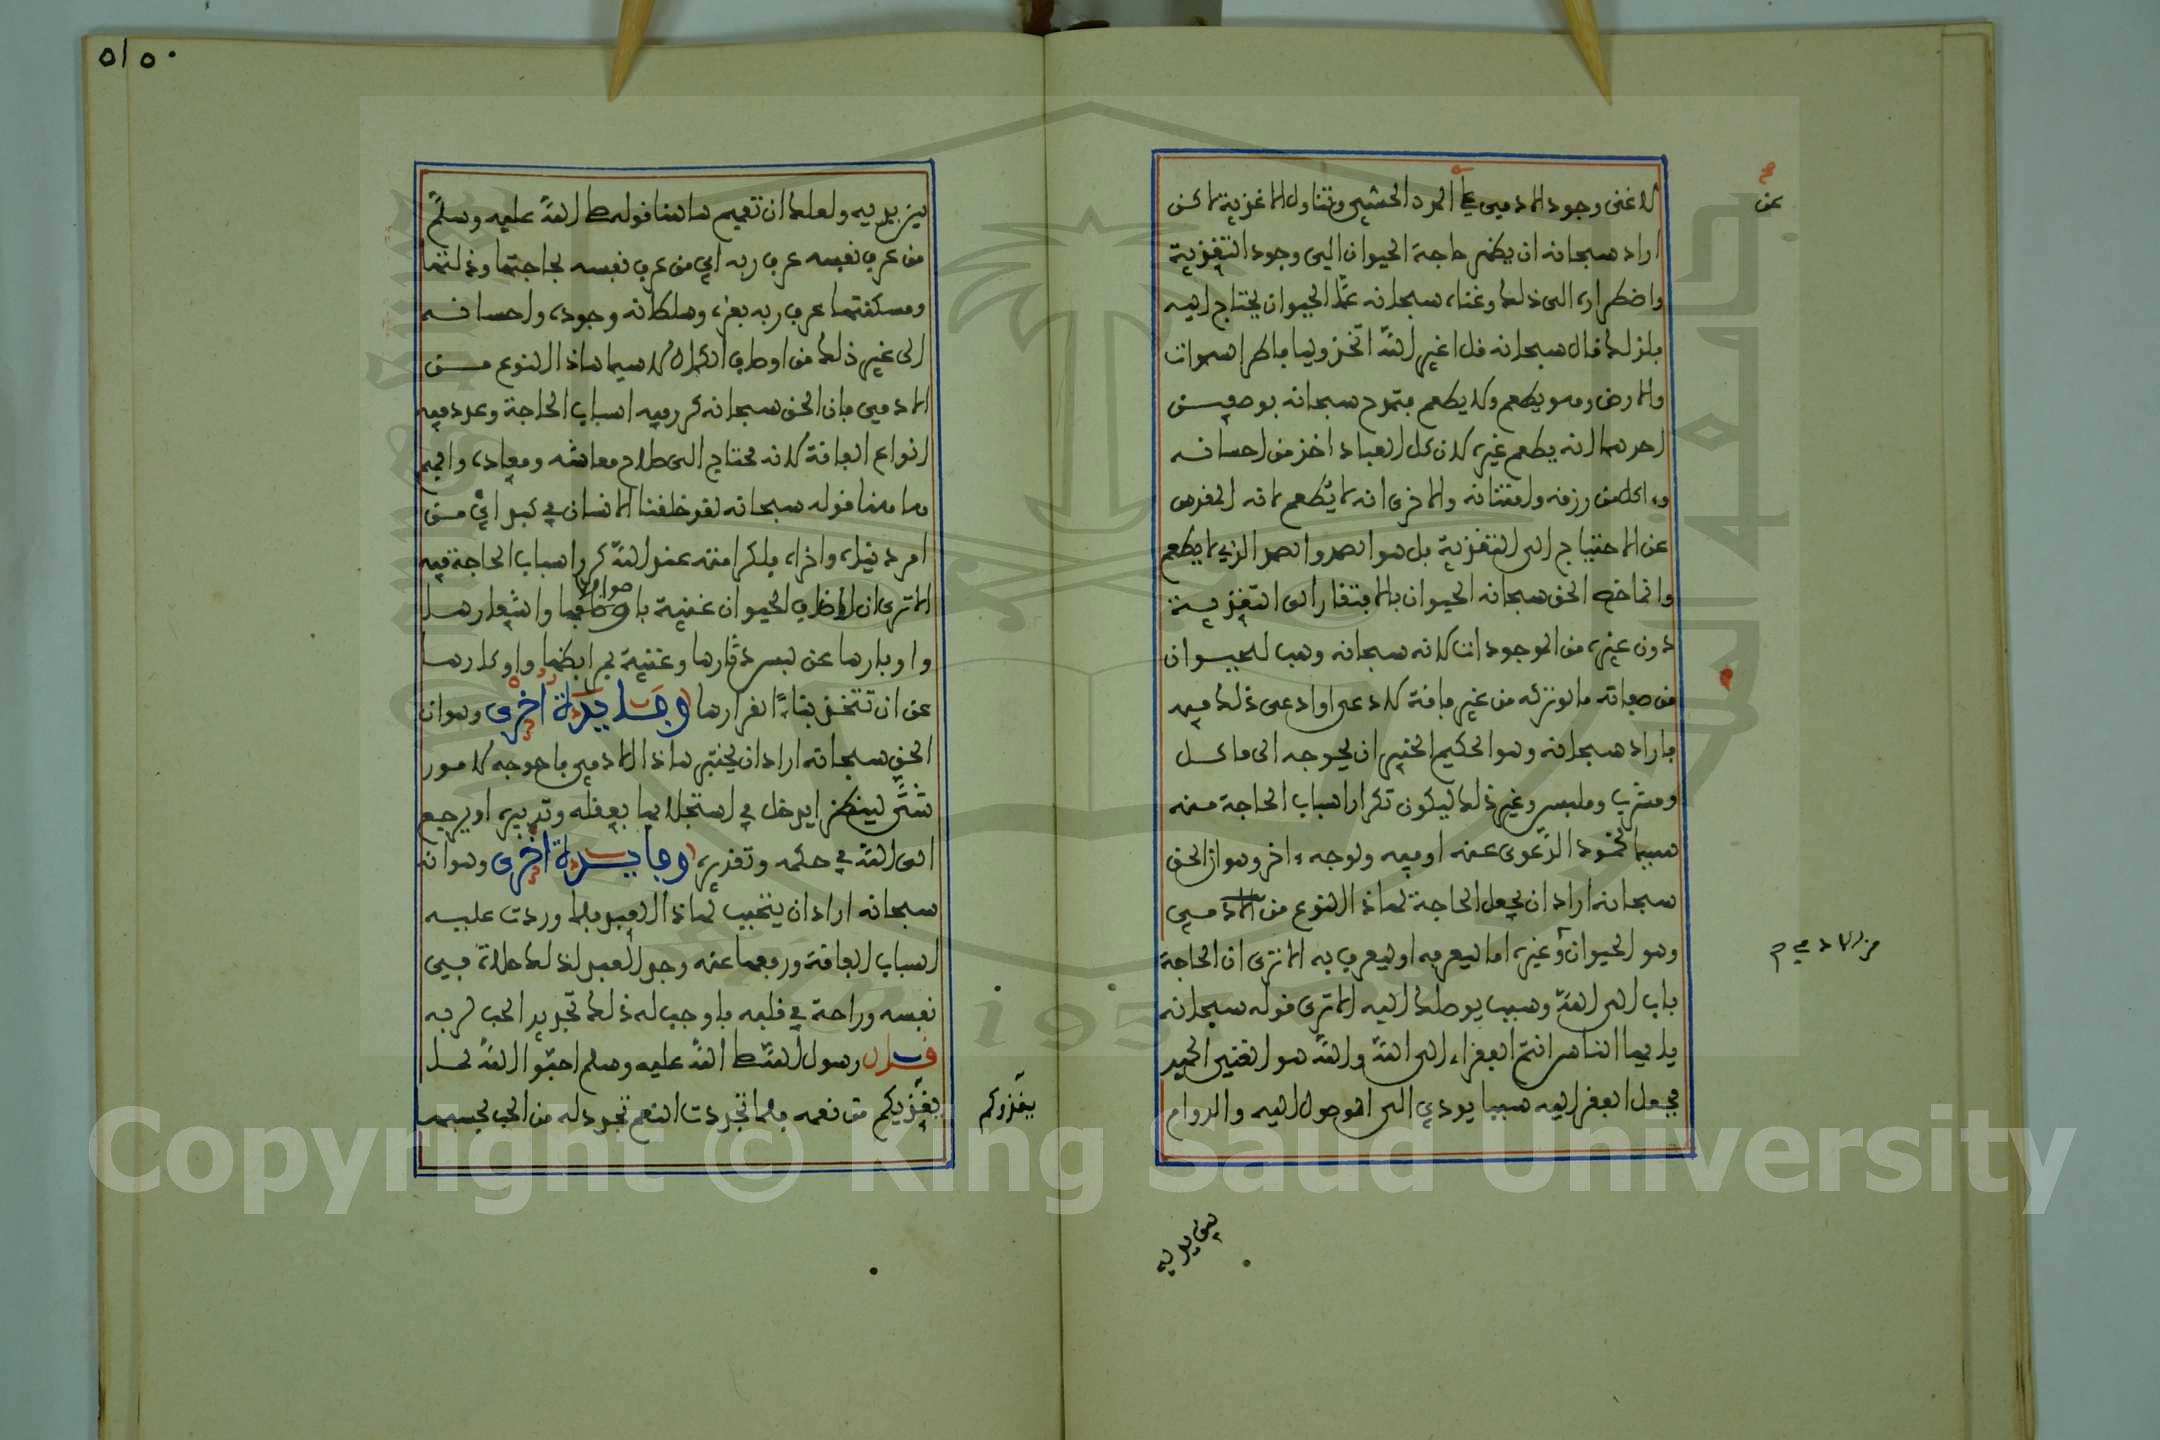 لاغنى وجود الادمي عن المدد الحسي وتناول الاغذية لاكن
اراد سبحانه ان يظهر حاجة الحيوان الى وجود التغذية
واضطراره الى ذلك وغناه سبحانه عما الحيوان يحتاج اليه
فلذلك قال سبحانه قل اغير الله اتخذ وليا فاطر السموات
والارض وهو يطعم ولا يطعم فتمدح سبحانه بوصفين
احدهما انه يطعم غيره لان كل العباد اخذ من احسانه
وءاكل من رزقه وامتنانه والاخرى انه لا يطعم لانه المقدس
عن الاحتياج الى التغذية بل هو الصمد والصمد الذي لا يطعم
وانما خص الحق سبحانه الحيوان بالافتقار الى التغذية
دون غيره من الموجودات لانه سبحانه وهب للحيوان
من صفاته ما لو تركه من غير فاقة لادعى او ادعى ذلك فيه
فاراد سبحانه وهو الحكيم الخبير ان يحوجه الى ماكل
ومشرب وملبس وغير ذلك ليكون تكرار اسباب الحاجة منه
سببا لخمود الدعوى عنه او فيه ولوجه ءاخر وهو ان الحق
سبحانه اراد ان يجعل الحاجة لهذا النوع من الادمي
وهو الحيوان وغيره اما ليعرفه او ليعرف به الا ترى ان الحاجة
باب الى الله وسبب يوصلك اليه الا ترى قوله سبحانه
يا ايها الناس انتم الفقراء الى الله والله هو الغني الحميد
فجعل الفقر اليه سببا يودي الى الوصول اليه والدوام
عن
من الادمي
بين يديه
٥١٥٠
بين يديه ولعلك ان تفهم هاهنا قوله صلى الله عليه وسلم
من عرف نفسه عرف ربه اي من عرف نفسه بحاجتها وذلتها
ومسكنتها عرف ربه بعزه وسلطانه وجوده واحسانه
الى غير ذلك من اوصاف الكمال لا سيما هاذا النوع من
الادمي فان الحق سبحانه كرر فيه اسباب الحاجة وعدد فيه
انواع الفاقة لانه محتاج الى صلاح معاشه ومعاده وافهم
هاهنا قوله سبحانه لقد خلقنا الانسان في كبد اي من
امر دنياه واخراه فلكرامته عند الله كرر اسباب الحاجة فيه
الا ترى ان اصناف الحيوان غنية باصوافها واشعارها
واوبارها عن لبس دثارها وغنية بمرابضها واوكارها
عن ان تتخذ بناء لقرارها وفايدة اخرى وهو ان
الحق سبحانه اراد ان يختبر هاذا الادمي فاحوجه لامور
شتى لينظر ايدخل في استجلابها بعقله وتدبيره او يرجع
الى الله في حكمه وتقديره وفايدة اخرى وهو انه
سبحانه اراد ان يتحبب لهاذا العبد فلما وردت عليه
اسباب الفاقة ورفعها عنه وجد العبد لذلك حلاوة في
نفسه وراحة في قلبه فاوجب له ذلك تجديد الحب لربه
قال رسول الله صلى الله عليه وسلم احبوا الله لما
يغذيكم من نعمه فلما تجددت النعم تجدد له من الحب بحسبها
يغذوكم
Copyright © King Saud University
1957